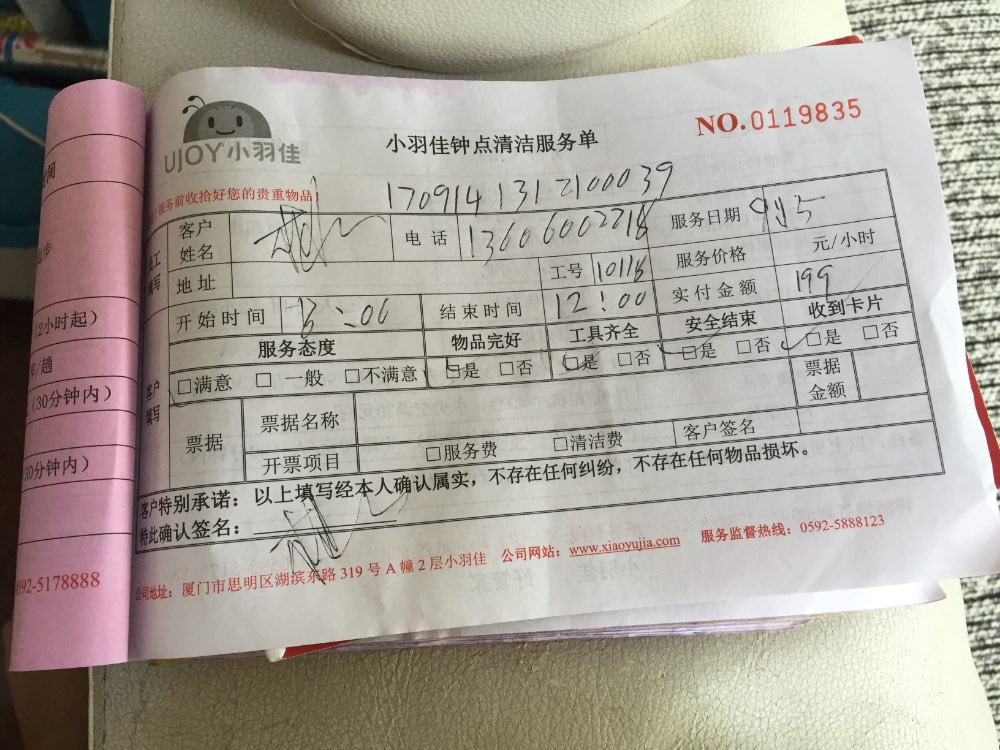 UJOY小羽佳
小羽佳钟点清洁服务单
NO.0119835
服务前收拾好您的贵重物品!
1709141312100039
员工填写
客户姓名
电话 13606002218
服务日期
地址
工号 10118
服务价格 元/小时
开始时间
结束时间 12:00
实付金额 199
服务态度 物品完好 工具齐全 安全结束 收到卡片
客户填写
□满意 □一般 □不满意 □是 □否 □是 □否 □是 □否 □是 □否
票据 票据名称 票据金额
开票项目 □服务费 □清洁费 客户签名
客户特别承诺:以上填写经本人确认属实,不存在任何纠纷,不存在任何物品损坏。
特此确认签名:
公司地址:厦门市思明区湖滨东路319号A幢2层小羽佳 公司网站:www.xiaoyujia.com 服务监督热线:0592-5888123
(2小时起)
/趟
(30分钟内)
30分钟内)
0592-5178888